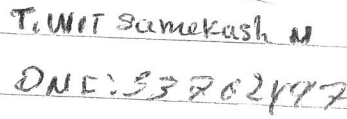 T. WIT Samekash N
DNI: 33762477